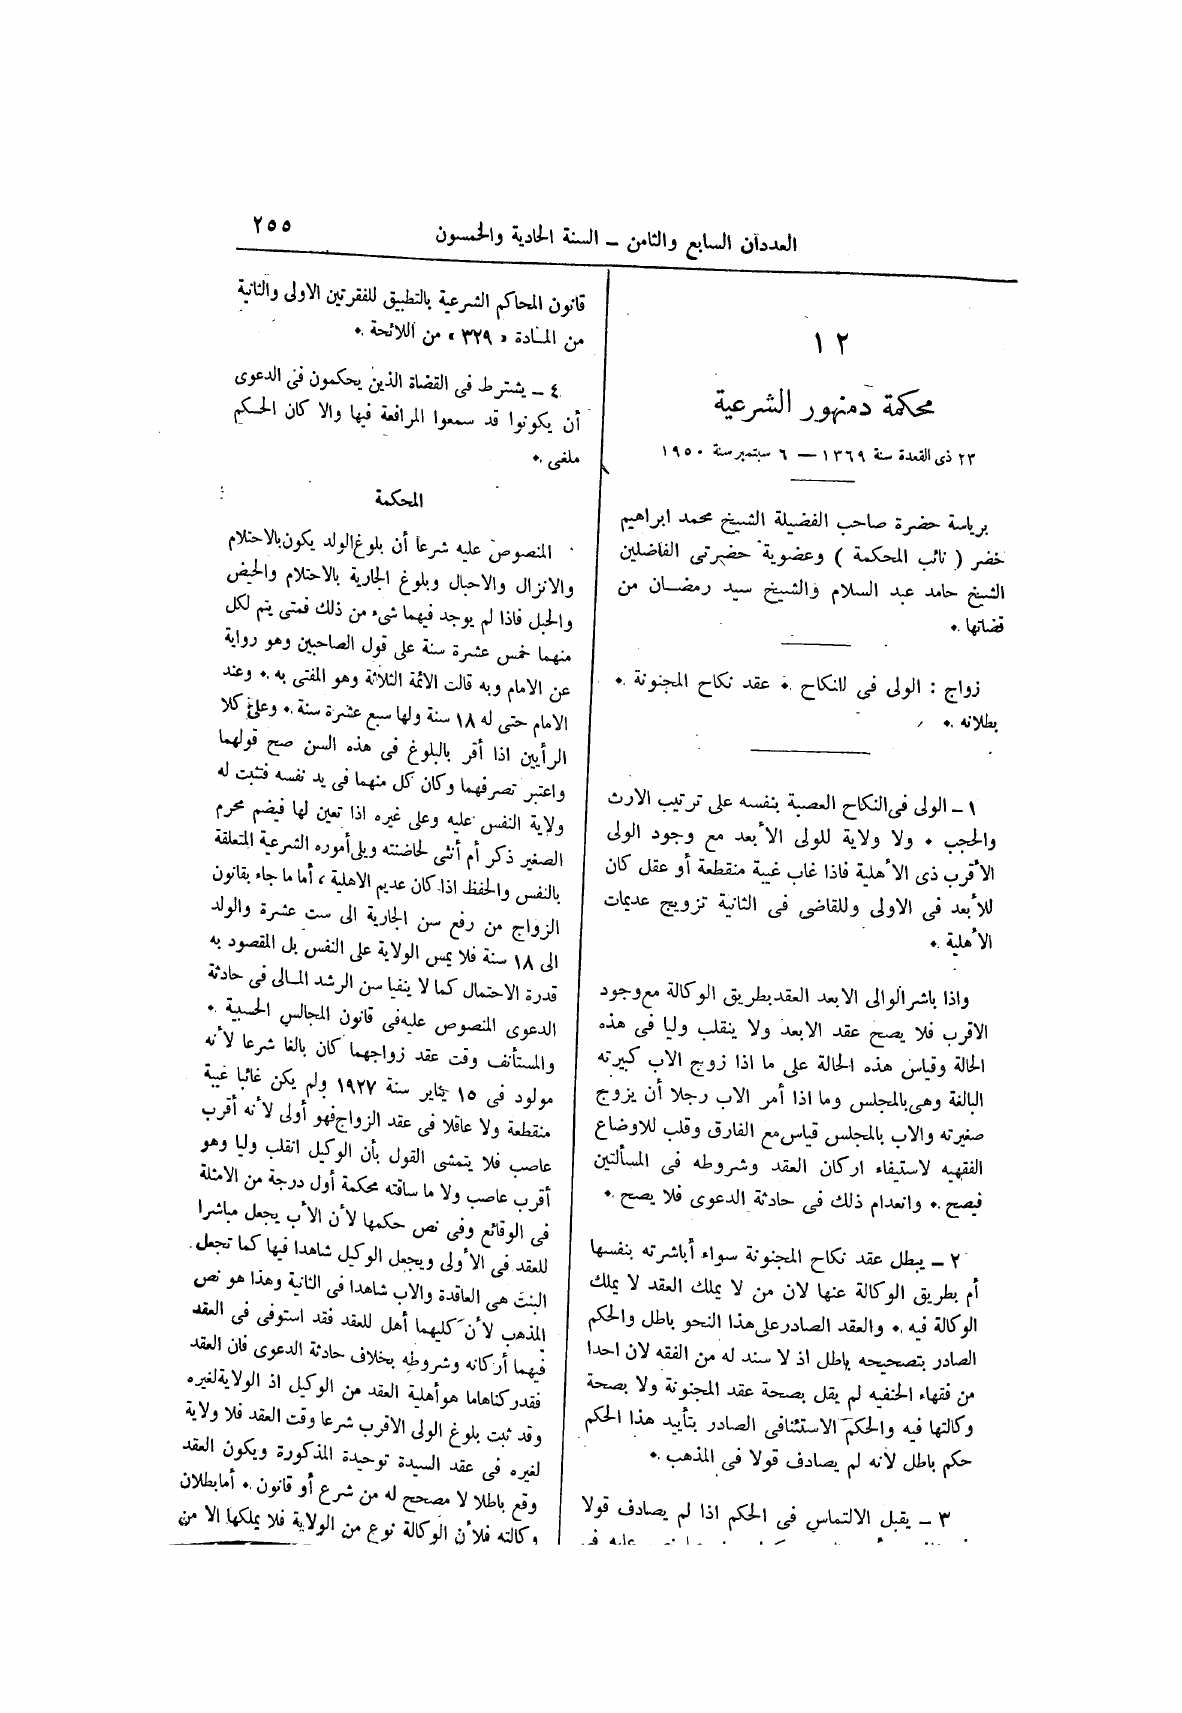 العددان السابع والثامن — السنة الحادية والخمسون
٢٥٥
١٢
محكمة دمنهور الشرعية
٢٣ ذى القعدة سنة ١٣٦٩ — ٦ سبتمبر سنة ١٩٥٠
برياسة حضرة صاحب الفضيلة الشيخ محمد ابراهيم
خضر ( نائب المحكمة ) وعضوية حضرتى الفاضلين
الشيخ حامد عبد السلام والشيخ سيد رمضان من
قضاتها .
زواج : الولى فى للنكاح . عقد نكاح المجنونة .
بطلانه .
١ — الولى فى النكاح العصبة بنفسه على ترتيب الارث
والحجب . ولا ولاية للولى الأبعد مع وجود الولى
الأقرب ذى الأهلية فاذا غاب غيبة منقطعة أو عقل كان
للأبعد فى الاولى وللقاضى فى الثانية تزويج عديمات
الأهلية .
واذا باشر الوالى الابعد العقد بطريق الوكالة مع وجود
الاقرب فلا يصح عقد الابعد ولا ينقلب وليا فى هذه
الحالة وقياس هذه الحالة على ما اذا زوج الاب كبيرته
البالغة وهى بالمجلس وما اذا أمر الاب رجلا أن يزوج
صغيرته والاب بالمجلس قياس مع الفارق وقلب للاوضاع
الفقهيه لاستيفاء اركان العقد وشروطه فى المسألتين
فيصح . وانعدام ذلك فى حادثة الدعوى فلا يصح .
٢ — يبطل عقد نكاح المجنونة سواء أباشرته بنفسها
أم بطريق الوكالة عنها لان من لا يملك العقد لا يملك
الوكالة فيه . والعقد الصادر على هذا النحو باطل والحكم
الصادر بتصحيحه باطل اذ لا سند له من الفقه لان احدا
من فقهاء الحنفيه لم يقل بصحة عقد المجنونة ولا بصحة
وكالتها فيه والحكم الاستئنافى الصادر بتأييد هذا الحكم
حكم باطل لانه لم يصادف قولا فى المذهب .
٣ — يقبل الالتماس فى الحكم اذا لم يصادف قولا
عليه فى
قانون المحاكم الشرعية بالتطبيق للفقرتين الاولى والثانية
من المادة « ٣٢٩ » من اللائحة .
٤ — يشترط فى القضاة الذين يحكمون فى الدعوى
أن يكونوا قد سمعوا المرافعة فيها والا كان الحكم
ملغى .
المحكمة
المنصوص عليه شرعا أن بلوغ الولد يكون بالاحتلام
والانزال والاحبال وبلوغ الجارية بالاحتلام والحيض
والحبل فاذا لم يوجد فيهما شىء من ذلك فمتى يتم لكل
منهما خمس عشرة سنة على قول الصاحبين وهو رواية
عن الامام وبه قالت الائمة الثلاثة وهو المفتى به . وعند
الامام حتى له ١٨ سنة ولها سبع عشرة سنة . وعلى كلا
الرأيين اذا أقر بالبلوغ فى هذه السن صح قولهما
واعتبر تصرفهما وكان كل منهما فى يد نفسه فتثبت له
ولاية النفس عليه وعلى غيره اذا تعين لها فيضم محرم
الصغير ذكر أم أنثى لحاضنته ويلى أموره الشرعية المتعلقة
بالنفس والحفظ اذا كان عديم الاهلية ، أما ما جاء بقانون
الزواج من رفع سن الجارية الى ست عشرة والولد
الى ١٨ سنة فلا يمس الولاية على النفس بل المقصود به
قدرة الاحتمال كما لا ينفيا سن الرشد المالى فى حادثة
الدعوى المنصوص عليه فى قانون المجالس الحسبية .
والمستأنف وقت عقد زواجهما كان بالغا شرعا لأنه
مولود فى ١٥ يناير سنة ١٩٢٧ ولم يكن غائبا غيبة
منقطعة ولا عاقلا فى عقد الزواج فهو أولى لأنه أقرب
عاصب فلا يتمشى القول بأن الوكيل انقلب وليا وهو
أقرب عاصب ولا ما ساقته محكمة أول درجة من الامثلة
فى الوقائع وفى نص حكمها لأن الأب يجعل مباشرا
للعقد فى الأولى ويجعل الوكيل شاهدا فيها كما تجعل
البنت هى العاقدة والاب شاهدا فى الثانية وهذا هو نص
المذهب لأن كليهما أهل للعقد فقد استوفى فى العقد
فيهما أركانه وشروطه بخلاف حادثة الدعوى فان العقد
فقد ركنا هاما هو أهلية العقد من الوكيل اذ الولاية لغيره
وقد ثبت بلوغ الولى الاقرب شرعا وقت العقد فلا ولاية
لغيره فى عقد السيدة توحيدة المذكورة ويكون العقد
وقع باطلا لا مصحح له من شرع أو قانون . أما بطلان
وكالته فلأن الوكالة نوع من الولاية فلا يملكها الا من